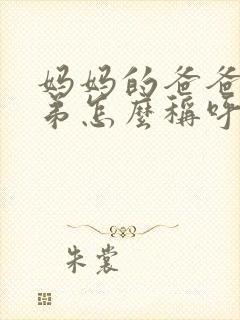 妈妈的爸爸
弟怎麼稱呼
朱裳